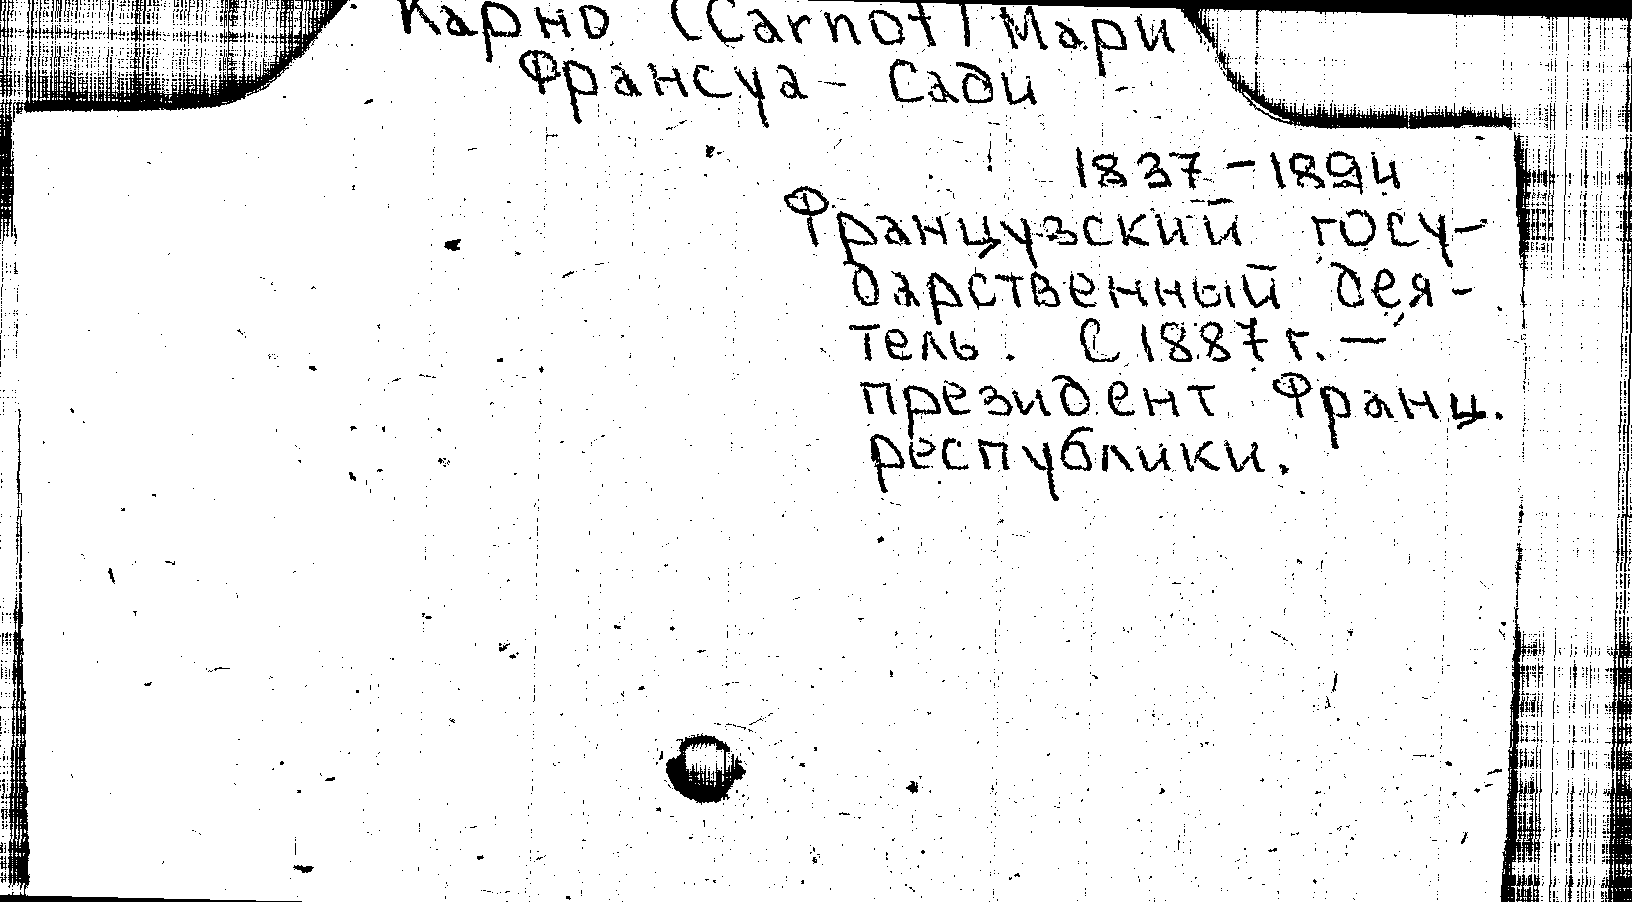 Карно (Carnot) Мари
Франсуа - Сади
1837 - 1894
Французский госу-
дарственный дея-
тель. С 1887 г. —
президент Франц.
республики.